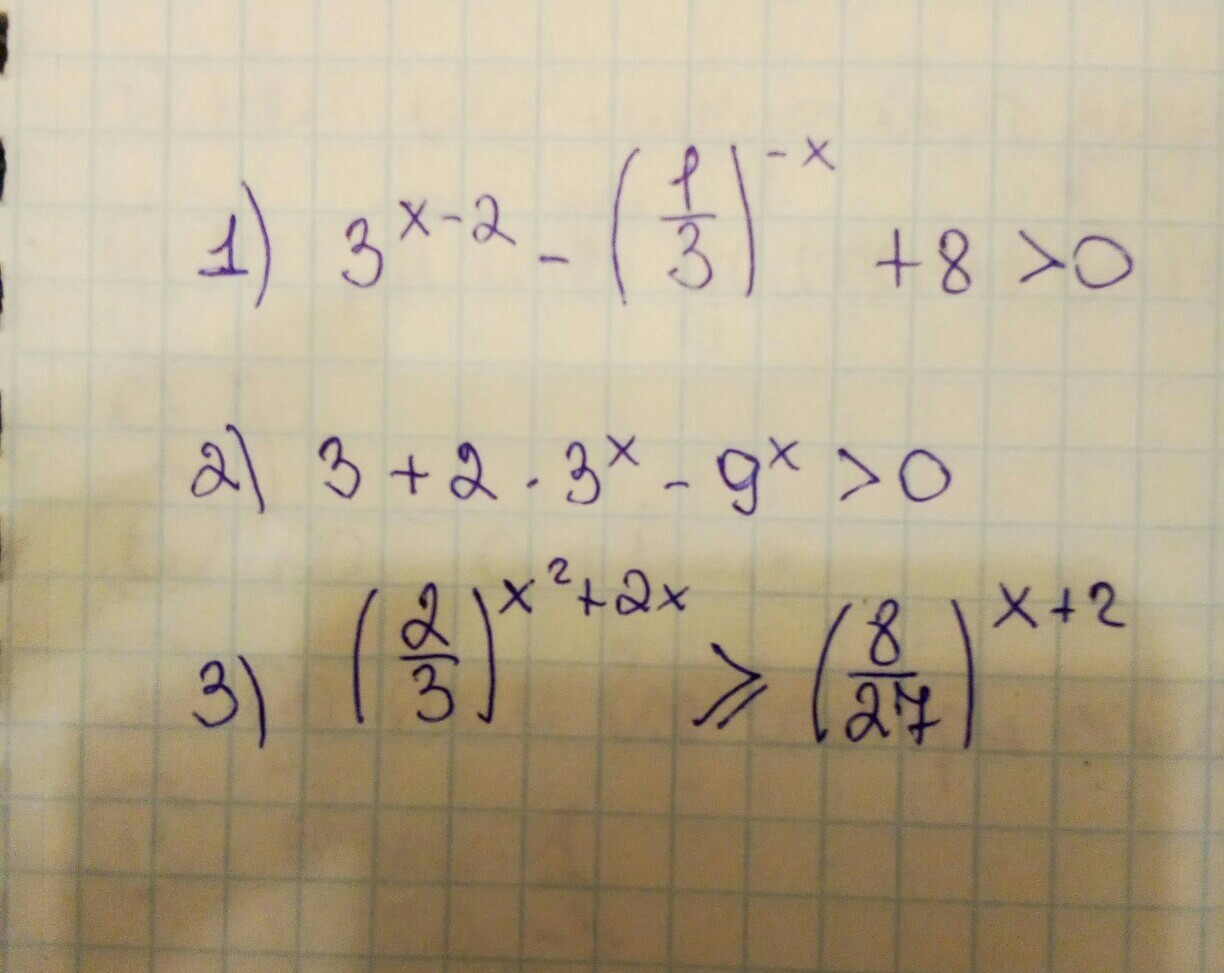 1) 3^(x-2) - (1/3)^(-x) + 8 > 0
2) 3 + 2 · 3^x - 9^x > 0
3) (2/3)^(x²+2x) ⩾ (8/27)^(x+2)